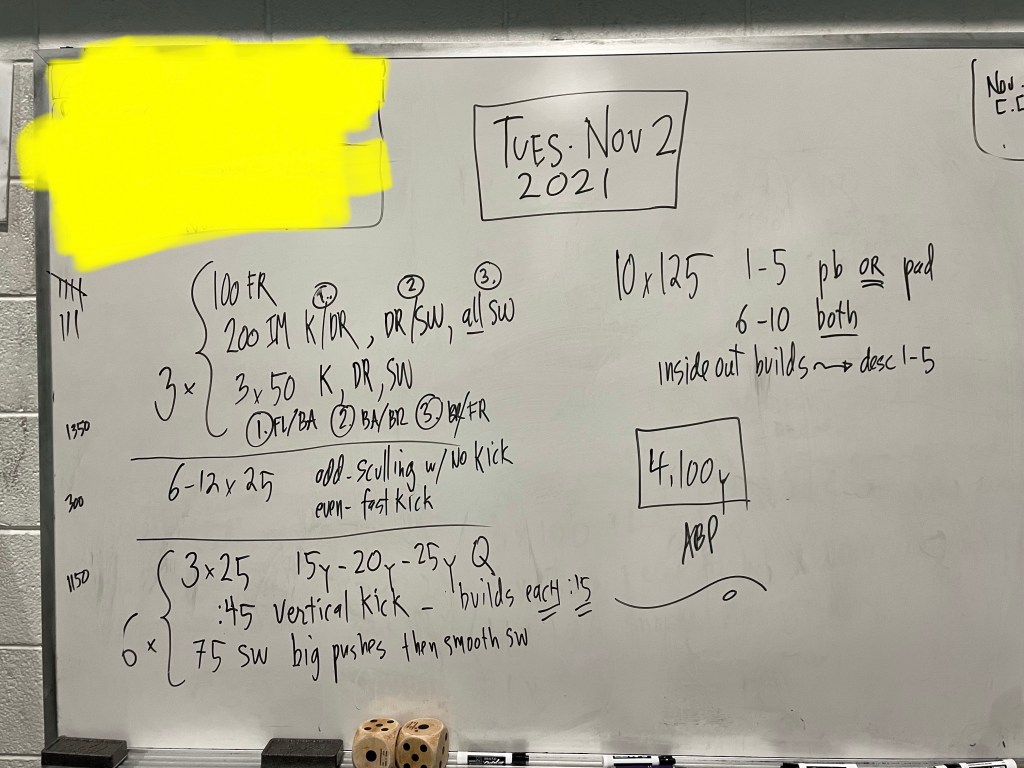 TUES. NOV 2
2021
Nov.
3x
100 FR
1. 2 3.
200 IM K/DR, DR/SW, all SW
3x50 K, DR, SW
1. FL/BA 2 BA/BR 3. BR/FR
1350
6-12x25 odd-sculling w/ No Kick
even- fast kick
300
1150
6x
3x25 15y-20y-25y Q
:45 vertical kick - builds each :15
75 SW big pushes then smooth sw
10x125 1-5 pb OR pad
6-10 both
inside out builds → desc 1-5
4,100y
ABP